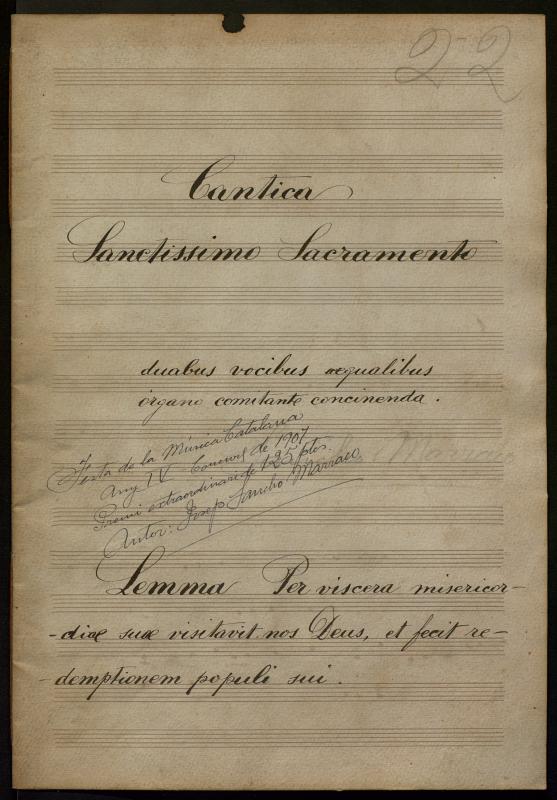 22
Cantica
Sanctissimo Sacramento
duabus vocibus æqualibus
órgano comitante concinenda.
Festa de la Música Catalana
Any IV Concurs de 1907
Premi extraordinari de 125 ptes.
Autor: Josep Sancho Marraco
Lemma Per viscera misericor-
-diæ suæ visitavit nos Deus, et fecit re-
-demptionem populi sui.